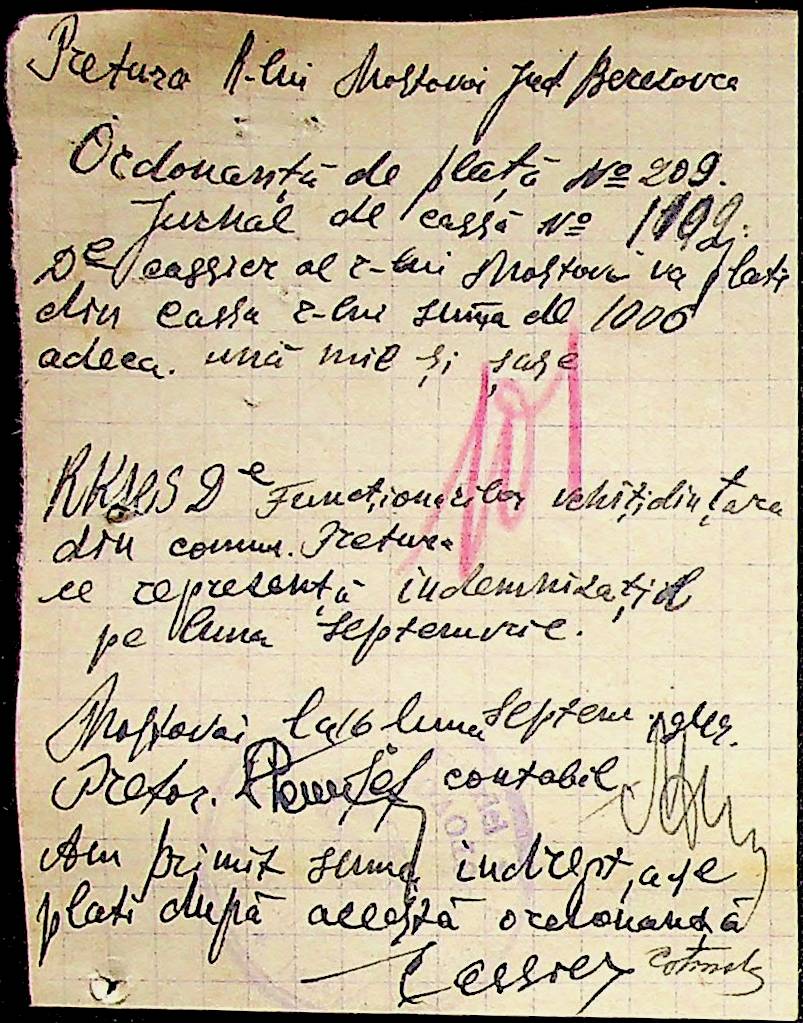 Pretura R-lui Mostovoi Jud. Berezovca
Ordonanță de plată № 209.
Jurnal de cassă №
De cassier al r-lui Mostovoi va plati
din cassa r-lui suma de 1006
adeca. ună mil și șase
101
RKMS De Funcționarilor
din comun. Pretura
ce reprezență indemnizația
pe luna Septemvrie.
Mostovoi la 16 luna Septem.
Pretor. Șef contabil
Am primit suma indrept, a se
plati după aceștă ordonanță
Cassier